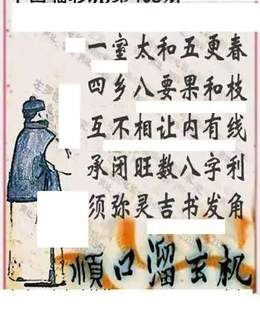 一室太和五更春
四乡八要果和枝
互不相让内有线
承闭旺数八字利
须弥灵吉书发角
顺口溜玄机